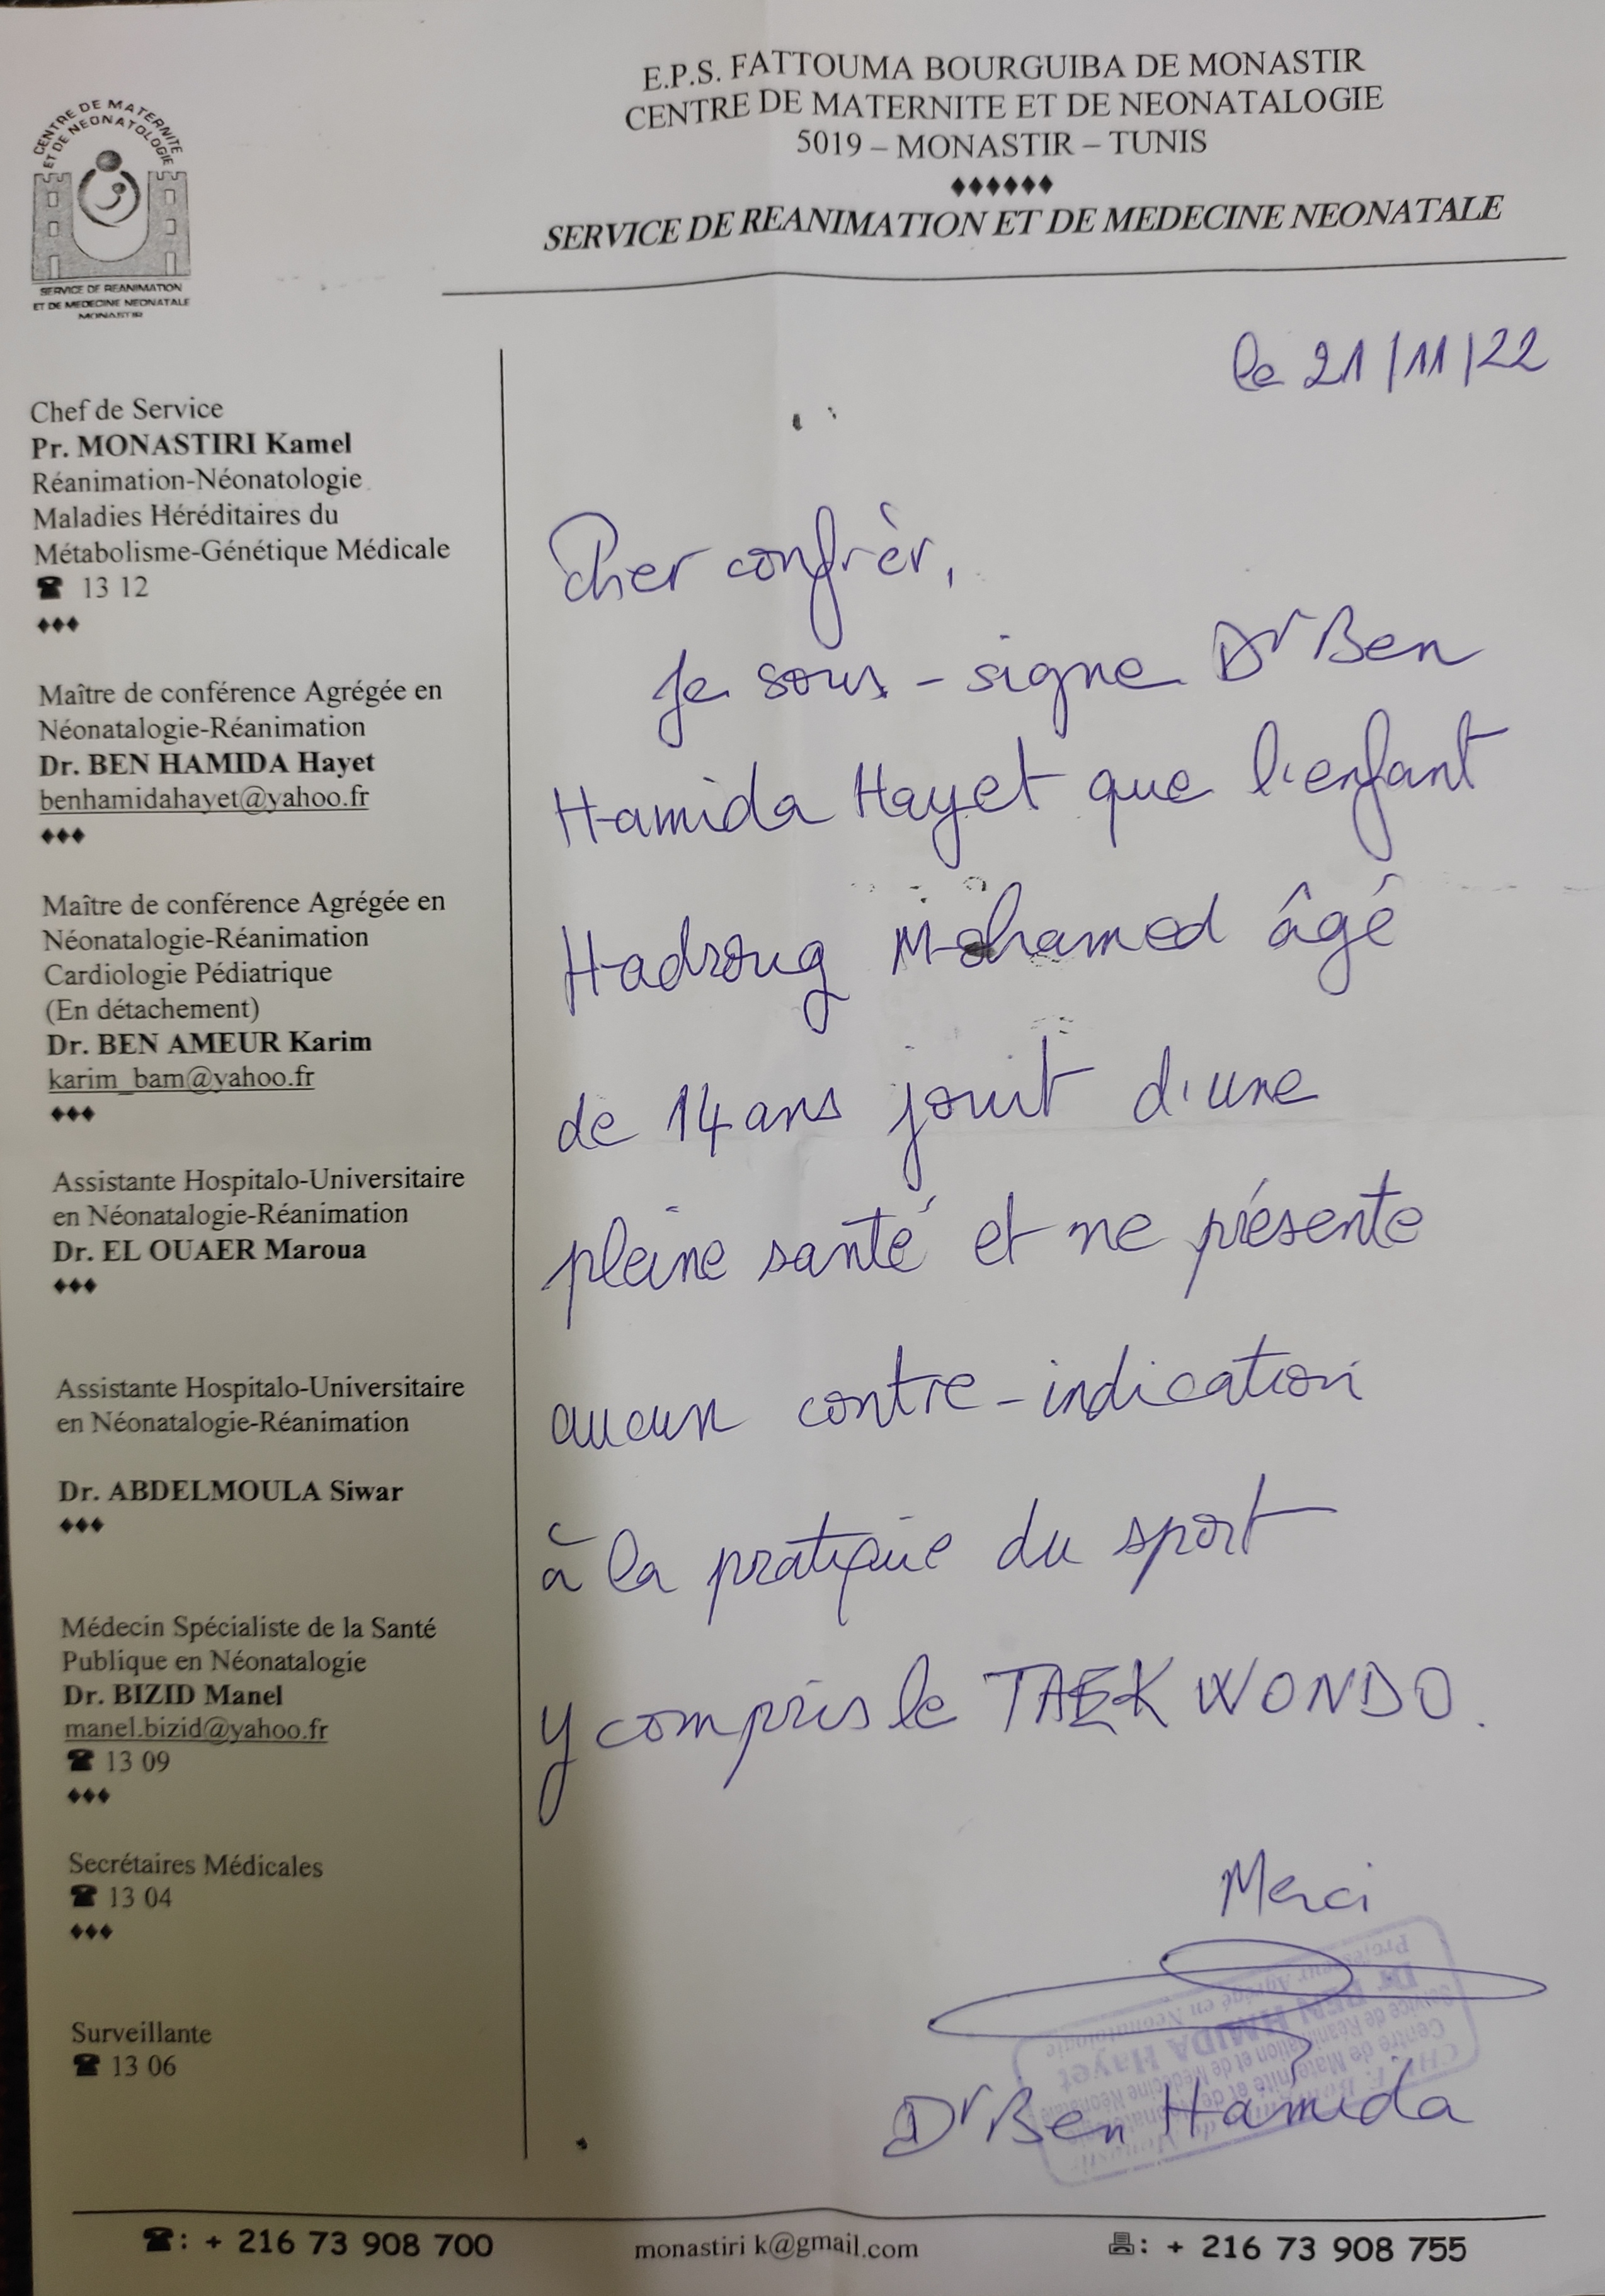 CENTRE DE MATERNITE
ET DE NEONATOLOGIE
SERVICE DE REANIMATION
ET DE MEDECINE NEONATALE
MONASTIR
E.P.S. FATTOUMA BOURGUIBA DE MONASTIR
CENTRE DE MATERNITE ET DE NEONATALOGIE
5019 – MONASTIR – TUNIS
♦♦♦♦♦♦
SERVICE DE REANIMATION ET DE MEDECINE NEONATALE
Chef de Service
Pr. MONASTIRI Kamel
Réanimation-Néonatologie
Maladies Héréditaires du
Métabolisme-Génétique Médicale
☎ 13 12
♦♦♦
Maître de conférence Agrégée en
Néonatalogie-Réanimation
Dr. BEN HAMIDA Hayet
benhamidahayet@yahoo.fr
♦♦♦
Maître de conférence Agrégée en
Néonatalogie-Réanimation
Cardiologie Pédiatrique
(En détachement)
Dr. BEN AMEUR Karim
karim_bam@yahoo.fr
♦♦♦
Assistante Hospitalo-Universitaire
en Néonatalogie-Réanimation
Dr. EL OUAER Maroua
♦♦♦
Assistante Hospitalo-Universitaire
en Néonatalogie-Réanimation
Dr. ABDELMOULA Siwar
♦♦♦
Médecin Spécialiste de la Santé
Publique en Néonatalogie
Dr. BIZID Manel
manel.bizid@yahoo.fr
☎ 13 09
♦♦♦
Secrétaires Médicales
☎ 13 04
♦♦♦
Surveillante
☎ 13 06
le 21/11/22
Cher confrèr,
Je sous-signe Dr Ben
Hamida Hayet que l'enfant
Hadroug Mohamed âgé
de 14 ans jouit d'une
pleine santé et ne présente
aucun contre-indication
à la pratique du sport
y compris le TAEKWONDO.
Merci
Dr Ben Hamida
Dr BEN HMIDA Hayet
Professeur Agrégé en Néonatologie
☎: + 216 73 908 700
monastiri k@gmail.com
🖷: + 216 73 908 755